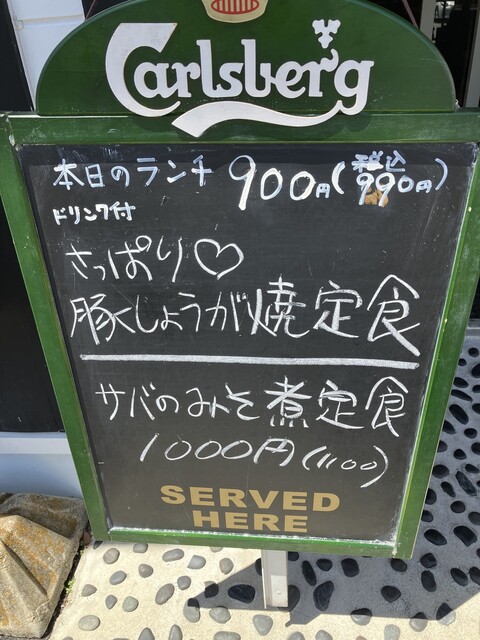 Carlsberg
本日のランチ 900円(税込990円)
ドリンク付
さっぱり♡
豚しょうが焼定食
サバのみそ煮定食
1000円(1100)
SERVED
HERE